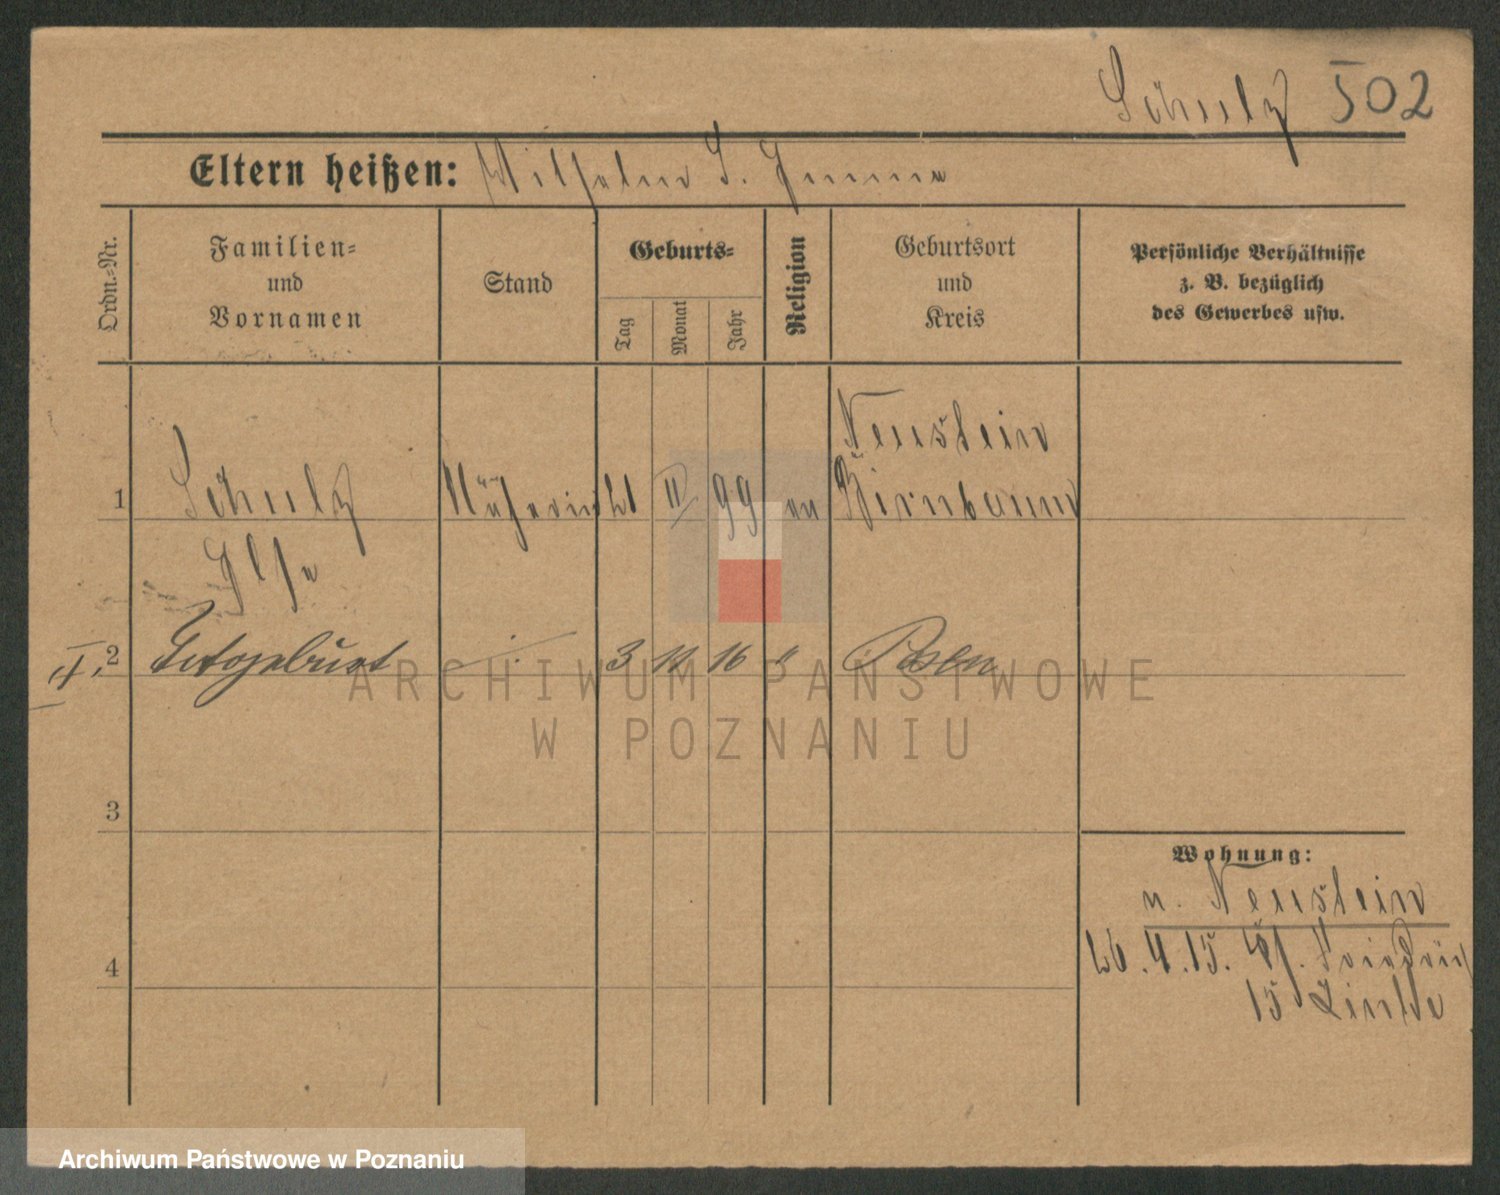 Schulz 502
Eltern heißen: Wilhelm S. Emma
Ordn.=Nr.
Familien=
und
Vornamen
Stand
Geburts=
Tag
Monat
Jahr
Religion
Geburtsort
und
Kreis
Persönliche Verhältnisse
z. B. bezüglich
des Gewerbes usw.
Neustein
1 Schulz Näherin 21 II 99 ev Birnbaum
Else
2 Totgeburt 3 11 16 " Posen
3
Wohnung:
n. Neustein
4
26.4.15. Friedrich
15 Linke
ARCHIWUM PAŃSTWOWE
W POZNANIU
Archiwum Państwowe w Poznaniu